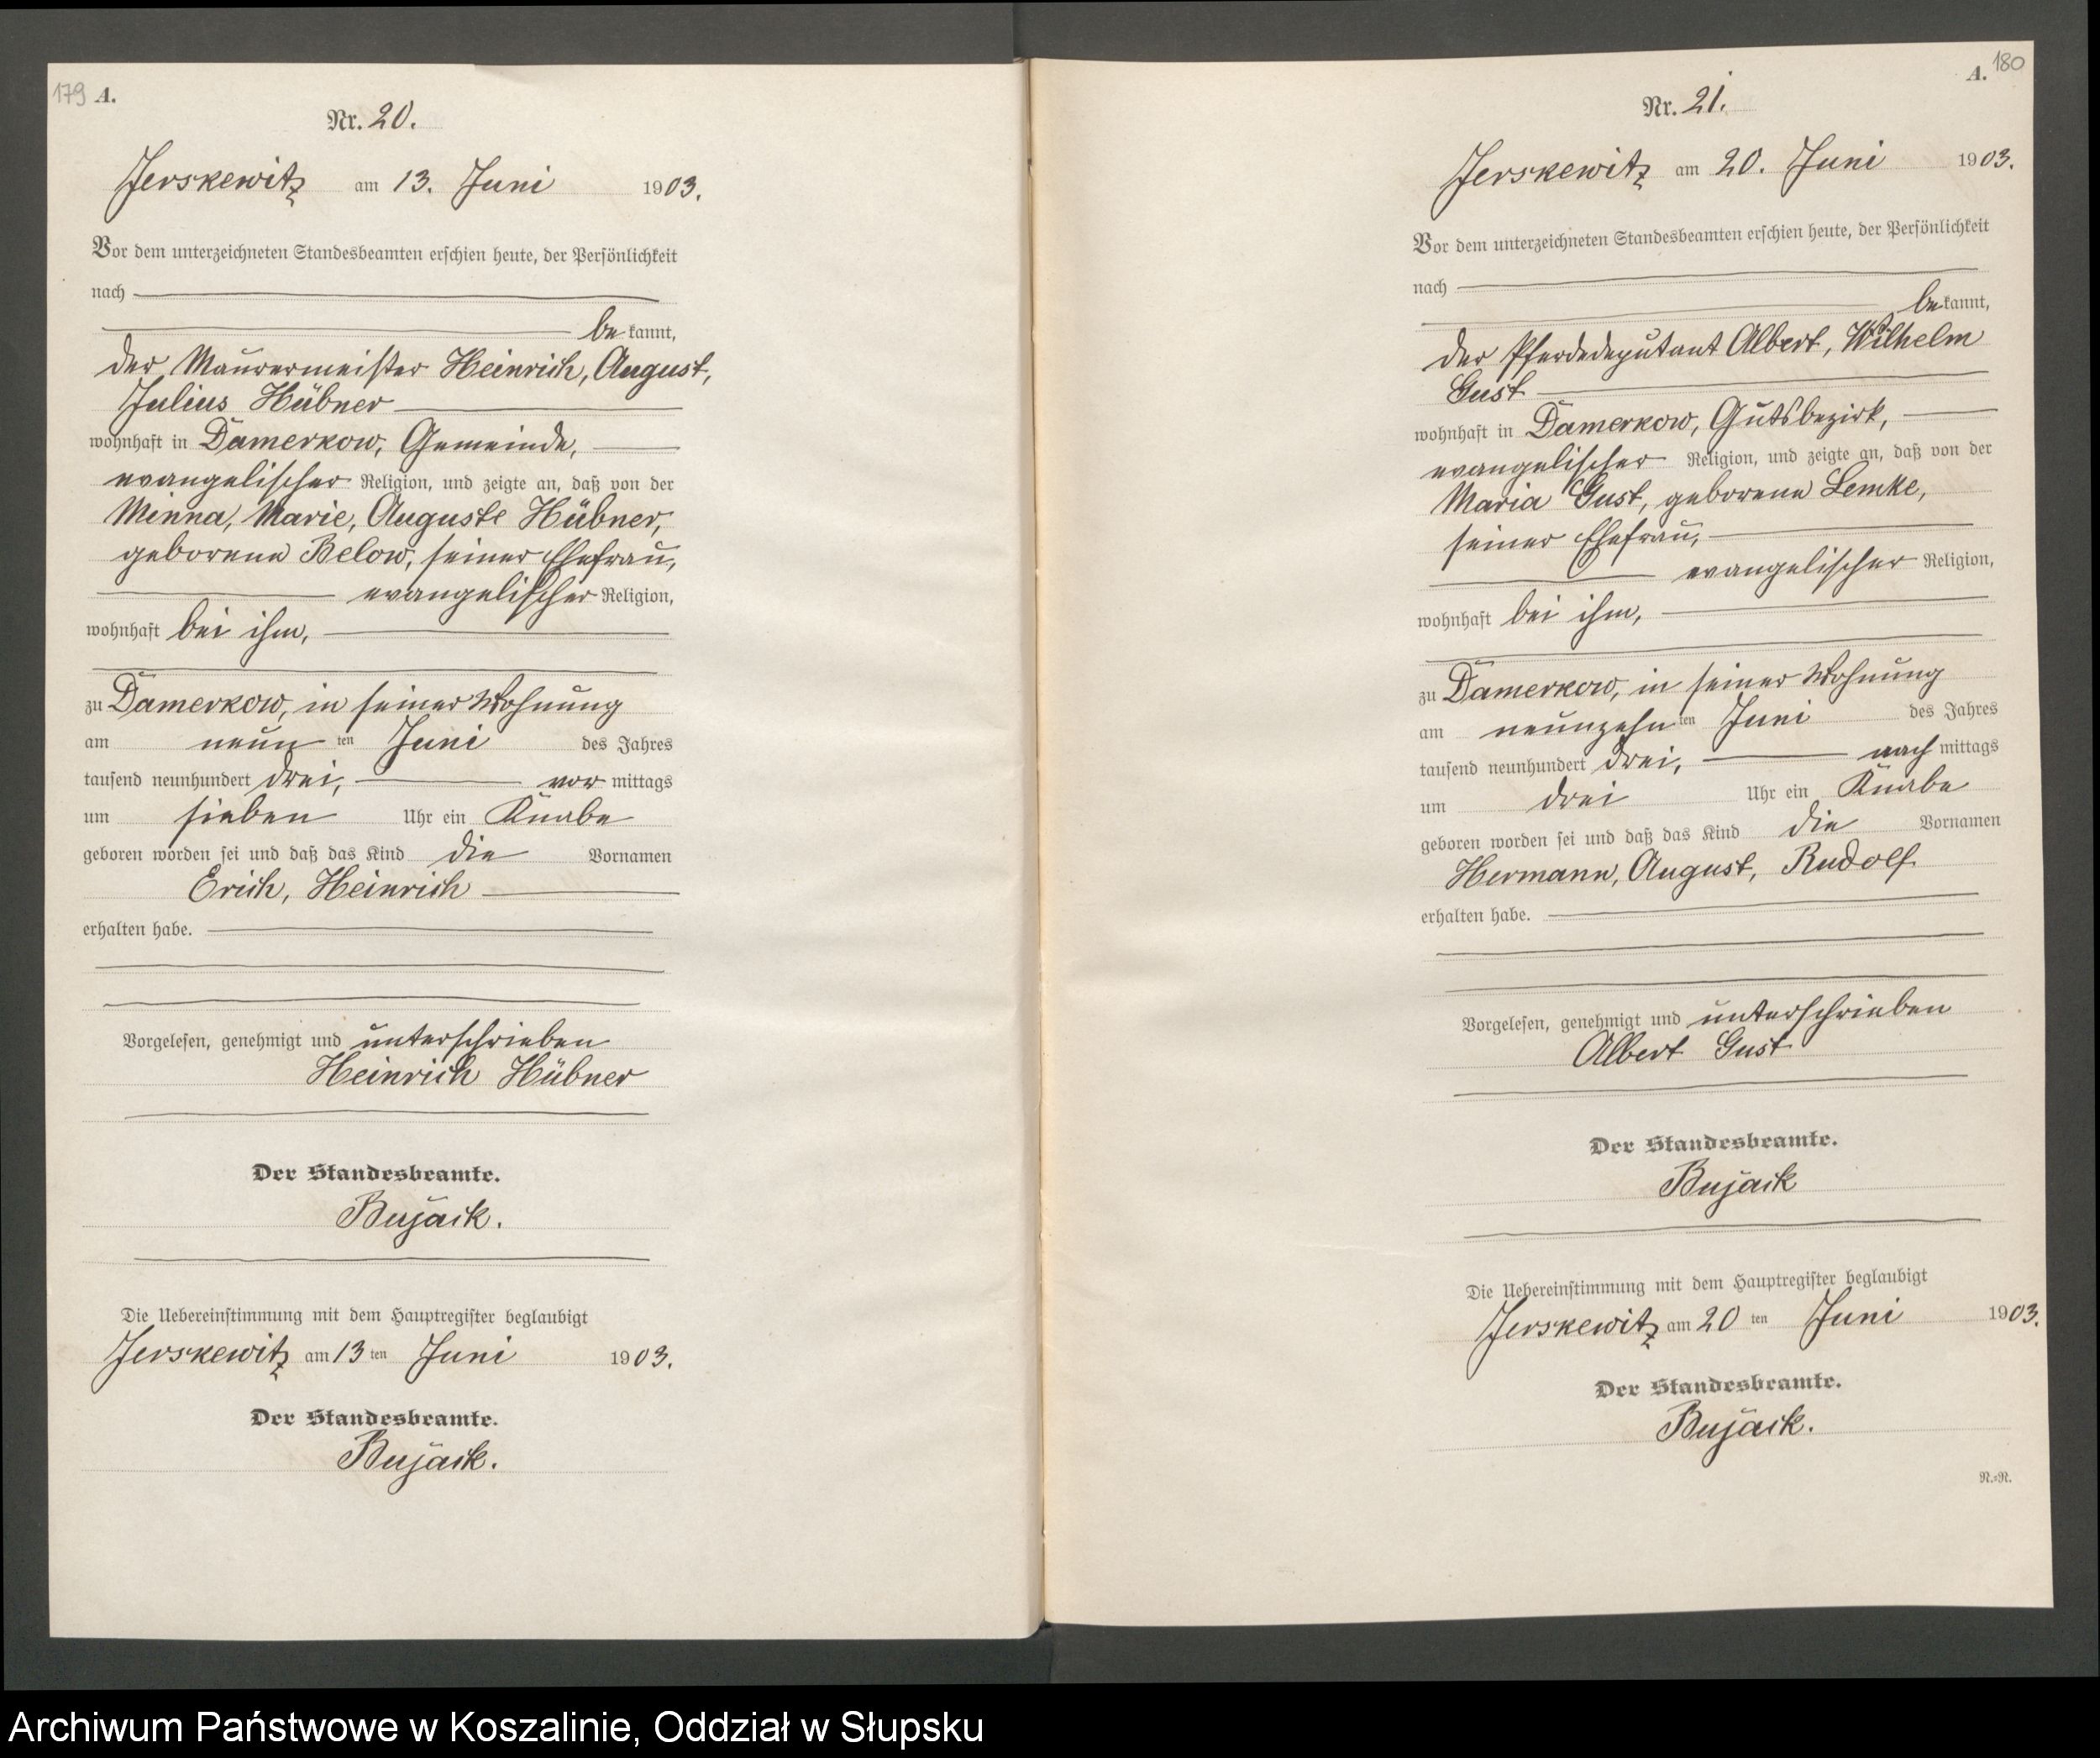 179 A.
Nr. 20.
Jerskewitz am 13. Juni 1903.
Vor dem unterzeichneten Standesbeamten erschien heute, der Persönlichkeit
nach
be kannt,
der Maurermeister Heinrich, August,
Julius Hübner
wohnhaft in Damerkow, Gemeinde,
evangelischer Religion, und zeigte an, daß von der
Minna, Marie, Auguste Hübner,
geborene Below, seiner Ehefrau,
evangelischer Religion,
wohnhaft bei ihm,
zu Damerkow, in seiner Wohnung
am neun ten Juni des Jahres
tausend neunhundert drei, vor mittags
um sieben Uhr ein Knabe
geboren worden sei und daß das Kind die Vornamen
Erich, Heinrich
erhalten habe.
Vorgelesen, genehmigt und unterschrieben
Heinrich Hübner
Der Standesbeamte.
Bujack.
Die Uebereinstimmung mit dem Hauptregister beglaubigt
Jerskewitz am 13 ten Juni 1903.
Der Standesbeamte.
Bujack.
A. 180
Nr. 21.
Jerskewitz am 20. Juni 1903.
Vor dem unterzeichneten Standesbeamten erschien heute, der Persönlichkeit
nach
be kannt,
der Pferdedeputant Albert, Wilhelm
Gust
wohnhaft in Damerkow, Gutsbezirk,
evangelischer Religion, und zeigte an, daß von der
Maria Gust, geborene Lemke,
seiner Ehefrau,
evangelischer Religion,
wohnhaft bei ihm,
zu Damerkow, in seiner Wohnung
am neunzehn ten Juni des Jahres
tausend neunhundert drei, nach mittags
um drei Uhr ein Knabe
geboren worden sei und daß das Kind die Vornamen
Hermann, August, Rudolf
erhalten habe.
Vorgelesen, genehmigt und unterschrieben
Albert Gust
Der Standesbeamte.
Bujack
Die Uebereinstimmung mit dem Hauptregister beglaubigt
Jerskewitz am 20 ten Juni 1903.
Der Standesbeamte.
Bujack.
N.=N.
Archiwum Państwowe w Koszalinie, Oddział w Słupsku